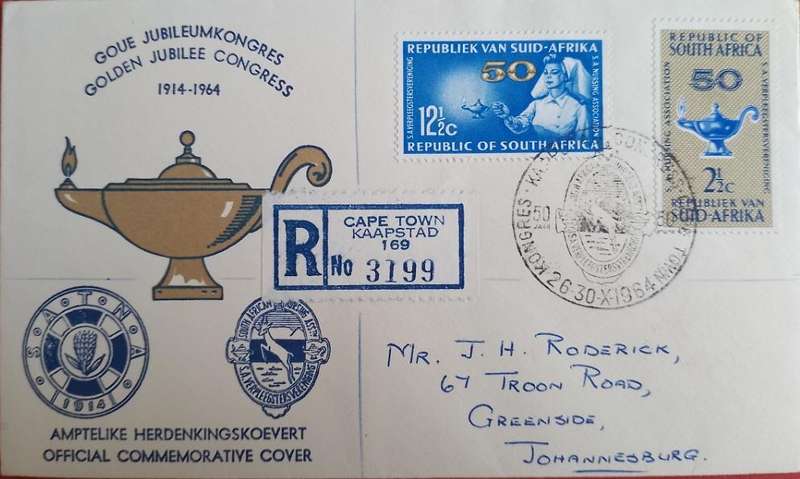 GOUE JUBILEUMKONGRES
GOLDEN JUBILEE CONGRESS
1914-1964
REPUBLIEK VAN SUID-AFRIKA
50
S.A.VERPLEEGSTERSVERENIGING
S.A. NURSING ASSOCIATION
12½c
REPUBLIC OF SOUTH AFRICA
REPUBLIC OF
SOUTH AFRICA
50
S.A. NURSING ASSOCIATION
S.A.VERPLEEGSTERSVERENIGING
2½c
REPUBLIEK VAN
SUID-AFRIKA
KONGRES
50
JAAR
26-30-X-1964
TOWN
R
CAPE TOWN
KAAPSTAD
169
No 3199
S.A.T.N.A.
1914
SOUTH AFRICAN NURSING ASSN
S.A.VERPLEEGSTERSVERENIGING
AMPTELIKE HERDENKINGSKOEVERT
OFFICIAL COMMEMORATIVE COVER
MR. J. H. RODERICK,
67 TROON ROAD,
GREENSIDE,
JOHANNESBURG.